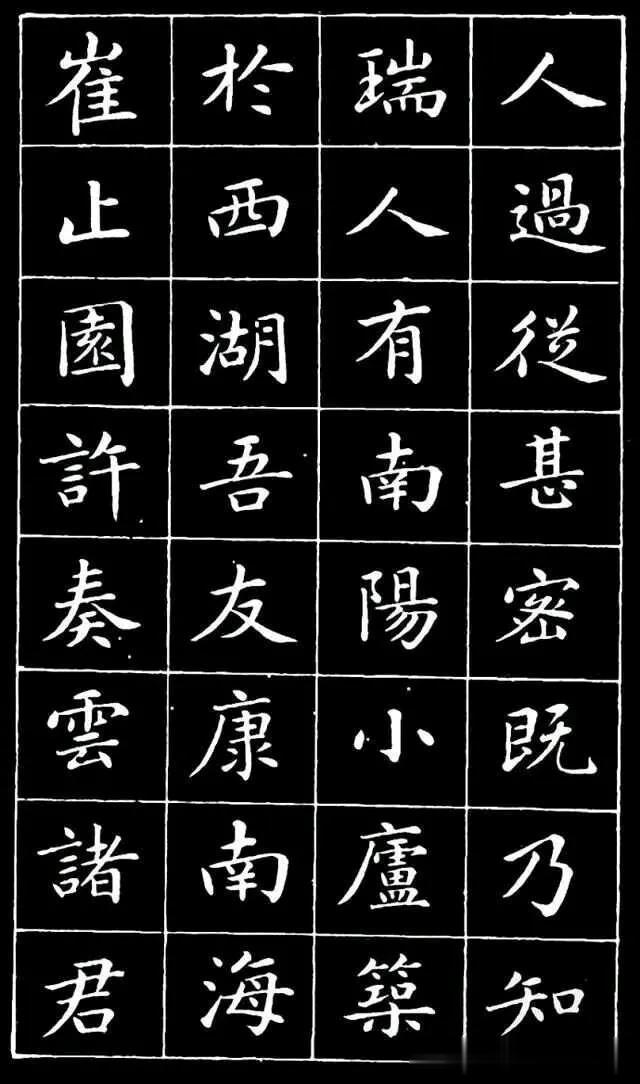 人過從甚密既乃知
瑞人有南陽小廬築
於西湖吾友康南海
崔止園許奏雲諸君